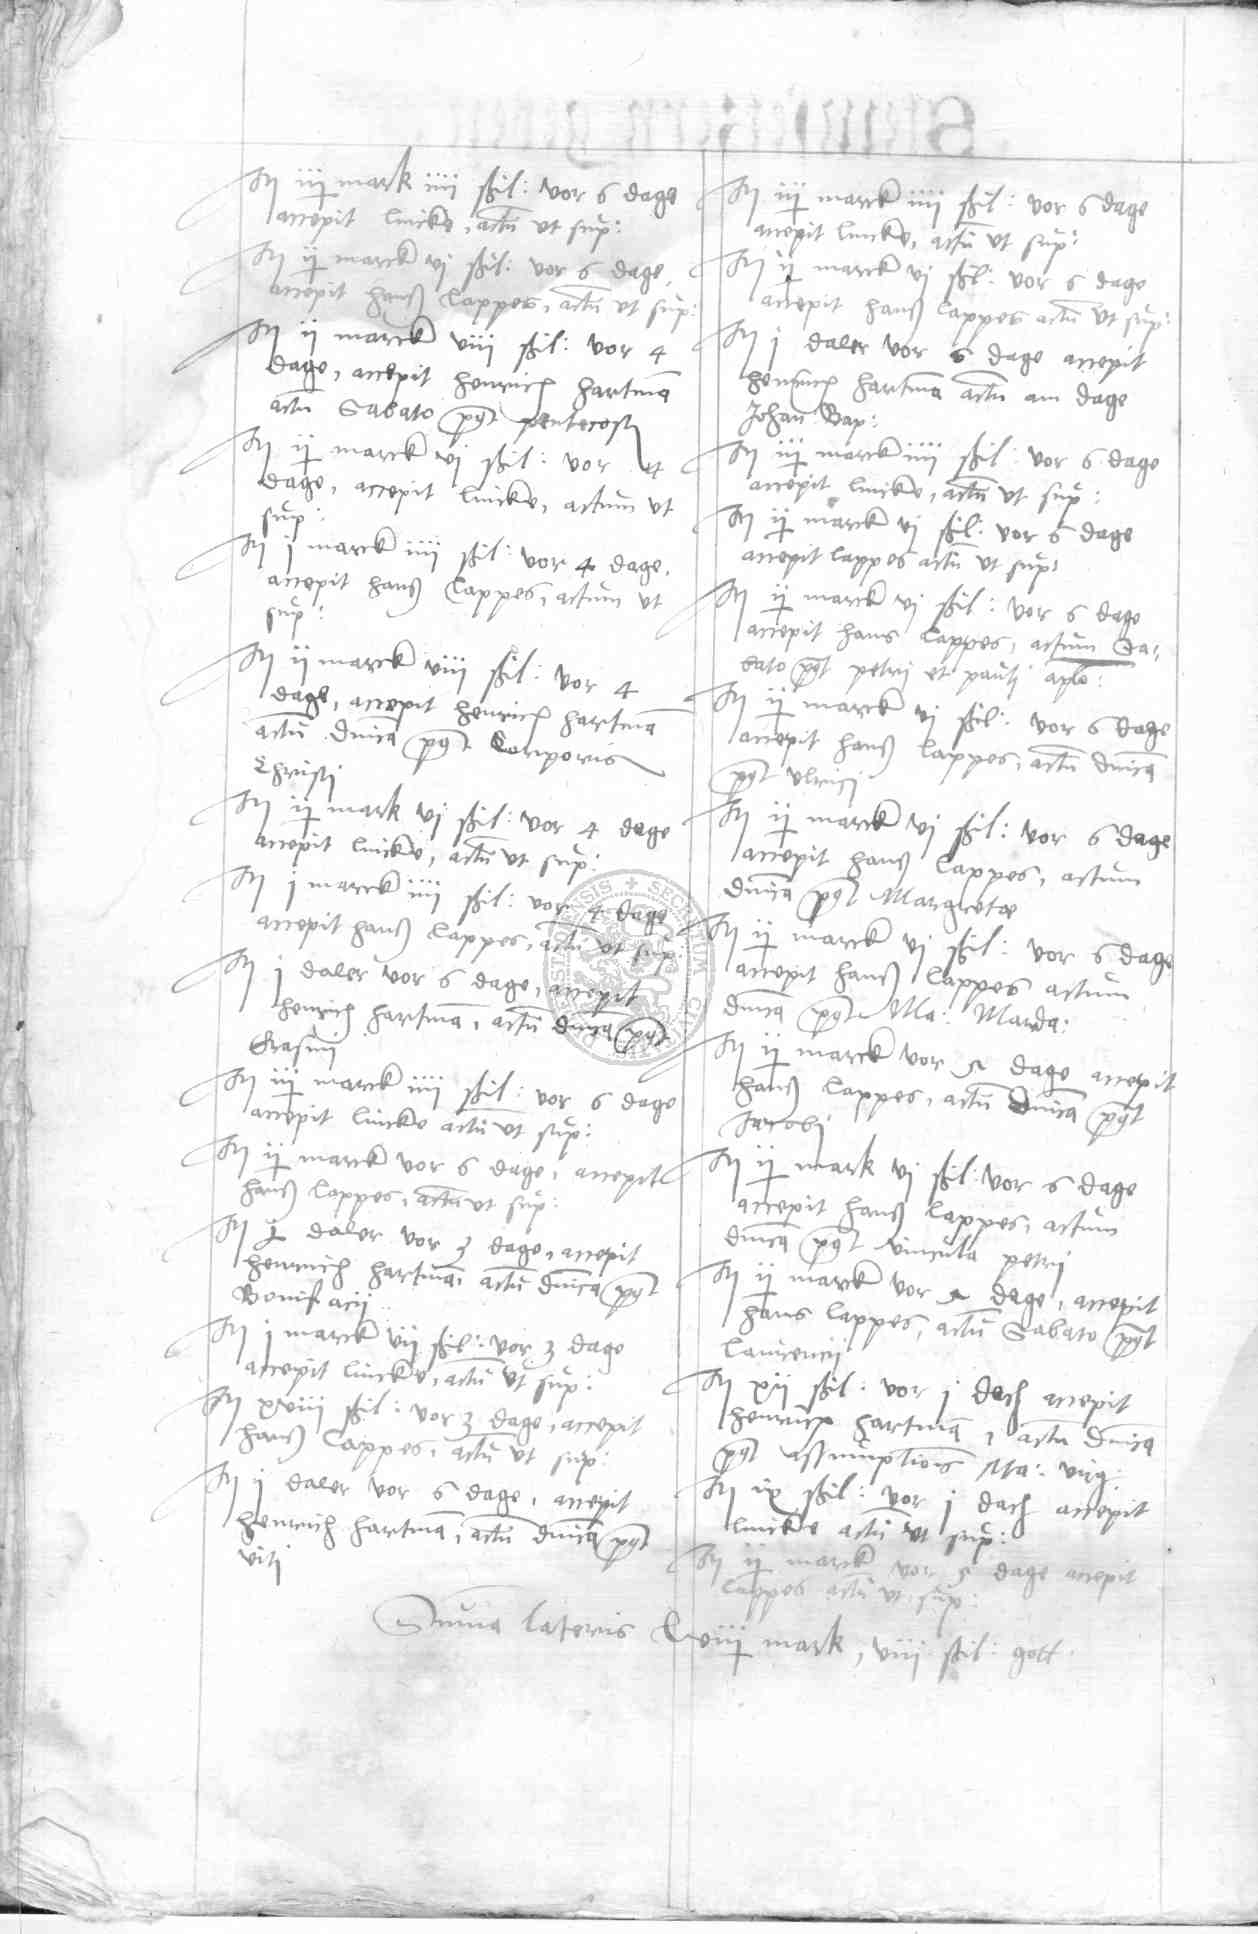 It iij mark iiij ßil: vor 6 dage
accepit lincke, actū ut sup:
It ij marck vj ßil: vor 6 dage,
accepit hanß Lappes, actū ut sup:
It ij marck viij ßil: vor 4
dage, accepit henrich hartmā
actū Sabato post pentecost
It ij marck vj ßil: vor 4
dage, accepit lincke, actum ut
sup:
It j marck iiij ßil: vor 4 dage,
accepit hanß Lappes, actum ut
sup:
It ij marck viij ßil: vor 4
dage, accepit henrich hartmā
actū dnica post Corporis
Christi
It ij mark vj ßil: vor 4 dage
accepit lincke, actū ut sup:
It j marck iiij ßil: vor 4 dage
accepit hanß Lappes, actū ut sup:
It j daler vor 6 dage, accepit
henrich hartmā, actū dnica post
Erasmi
It iij marck iiij ßil: vor 6 dage
accepit lincke actū ut sup:
It ij marck vor 6 dage, accepit
hanß Lappes, actū ut sup:
It daler vor 3 dage, accepit
henrich hartmā, actū dnica post
Bonifacij
It j marck vij ßil: vor 3 dage
accepit lincke, actū ut sup:
It xviij ßil: vor 3 dage, accepit
hanß Lappes, actū ut sup:
It j daler vor 6 dage, accepit
henrich hartmā, actū dnica post
viti
It iij marck iiij ßil: vor 6 dage
accepit lincke, actū ut sup:
It ij marck vj ßil: vor 6 dage
accepit hanß Lappes actū ut sup:
It j daler vor 6 dage accepit
henrich hartmā actū am dage
Johan: Bap:
It iij marck iiij ßil: vor 6 dage
accepit lincke, actū ut sup:
It ij marck vj ßil: vor 6 dage
accepit lappes actū ut sup:
It ij marck vj ßil: vor 6 dage
accepit hans Lappes, actum Sa-
bato post petrij et paulj aplo:
It ij marck vj ßil: vor 6 dage
accepit hanß Lappes, actū dnica
post ulricj
It ij marck vj ßil: vor 6 dage
accepit hanß Lappes, actum
dnica post Margretae
It ij marck vj ßil: vor 6 dage
accepit hanß Lappes actum
dnica post Ma: Magda:
It ij marck vor 5 dage accepit
hanß Lappes, actū dnica post
Jacobj
It ij mark vj ßil: vor 6 dage
accepit hanß Lappes, actum
dnica post vincula petrij
It ij marck vor 5 dage, accepit
hans Lappes, actū Sabato post
Laurencij
It xij ßil: vor j dach accepit
henrich hartmā, actū dnica
post assumptionis Ma: virg:
It ix ßil: vor j dach accepit
lincke actū ut sup:
It ij marck vor 5 dage accepit
Lappes actū ut sup:
Suma lateris Lviij mark, viij ßil: gott
SECRETUM CIVITATIS